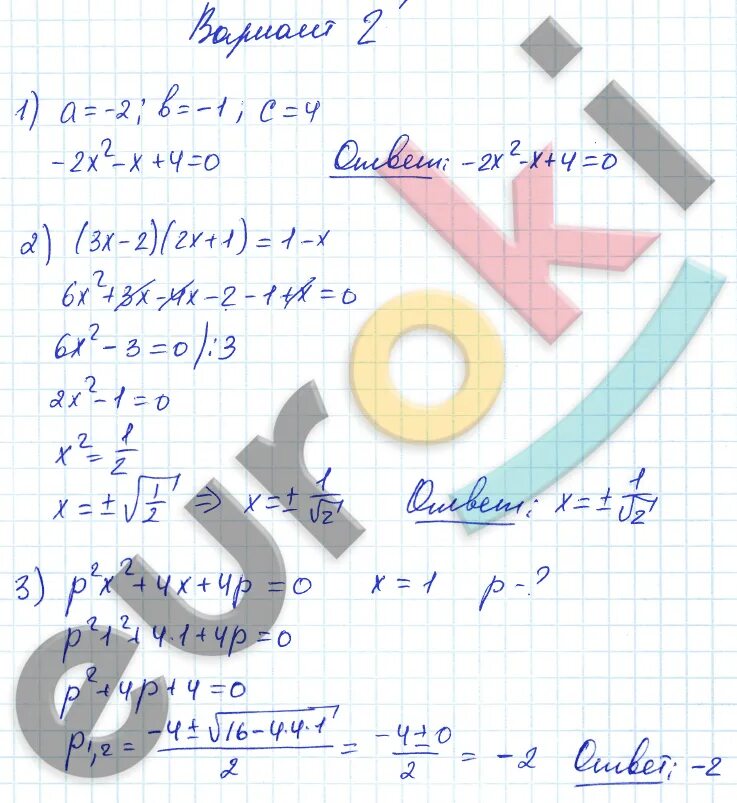 Вариант 2
1) a = -2; b = -1; c = 4
-2x² - x + 4 = 0 Ответ: -2x² - x + 4 = 0
2) (3x - 2)(2x + 1) = 1 - x
6x² + 3x - 4x - 2 - 1 + x = 0
6x² - 3 = 0 /:3
2x² - 1 = 0
x² = 1/2
x = ±√(1/2) ⇒ x = ± 1/√2 Ответ: x = ± 1/√2
3) p²x² + 4x + 4p = 0 x = 1 p - ?
p²1² + 4·1 + 4p = 0
p² + 4p + 4 = 0
p1,2 = (-4 ± √(16 - 4·4·1))/2 = (-4 ± 0)/2 = -2 Ответ: -2
euroki